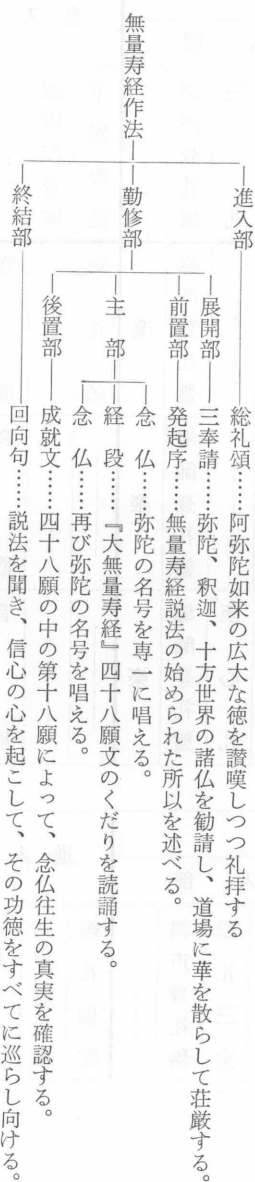 無量寿経作法
進入部
総礼頌……阿弥陀如来の広大な徳を讃嘆しつつ礼拝する
勤修部
展開部
三奉請……弥陀、釈迦、十方世界の諸仏を勧請し、道場に華を散らして荘厳する。
前置部
発起序……無量寿経説法の始められた所以を述べる。
主部
念仏……弥陀の名号を専一に唱える。
経段……『大無量寿経』四十八願文のくだりを読誦する。
念仏……再び弥陀の名号を唱える。
後置部
成就文……四十八願の中の第十八願によって、念仏往生の真実を確認する。
終結部
回向句……説法を聞き、信心の心を起こして、その功徳をすべてに巡らし向ける。